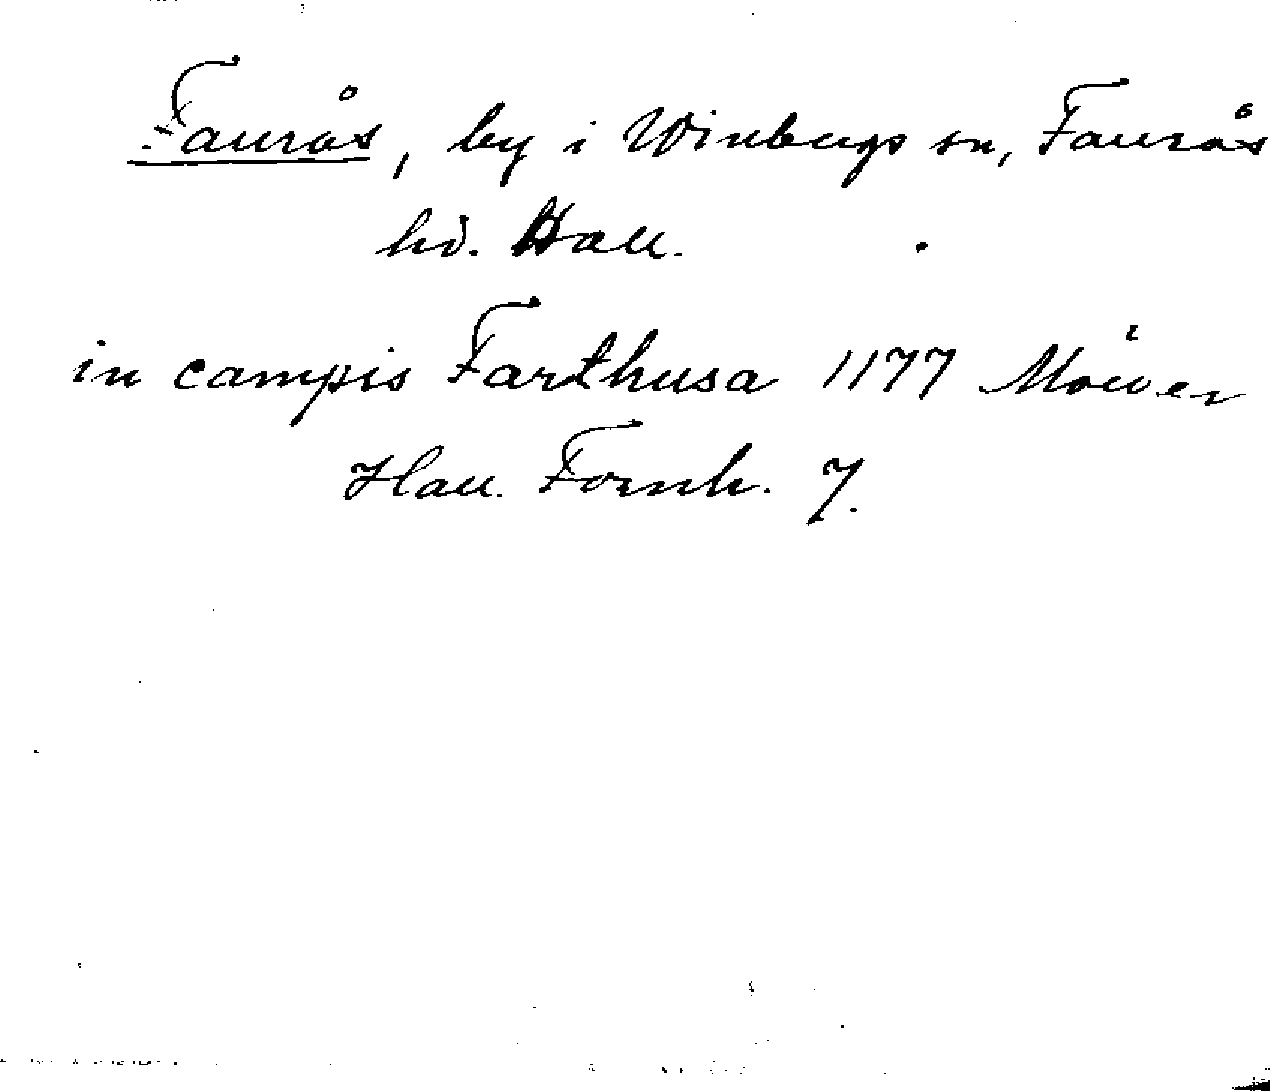 Faurås, by i Winbergs sn, Faurås
hd. Hall.
in campis Farthusa 1177
Hall. Fornh. 7.